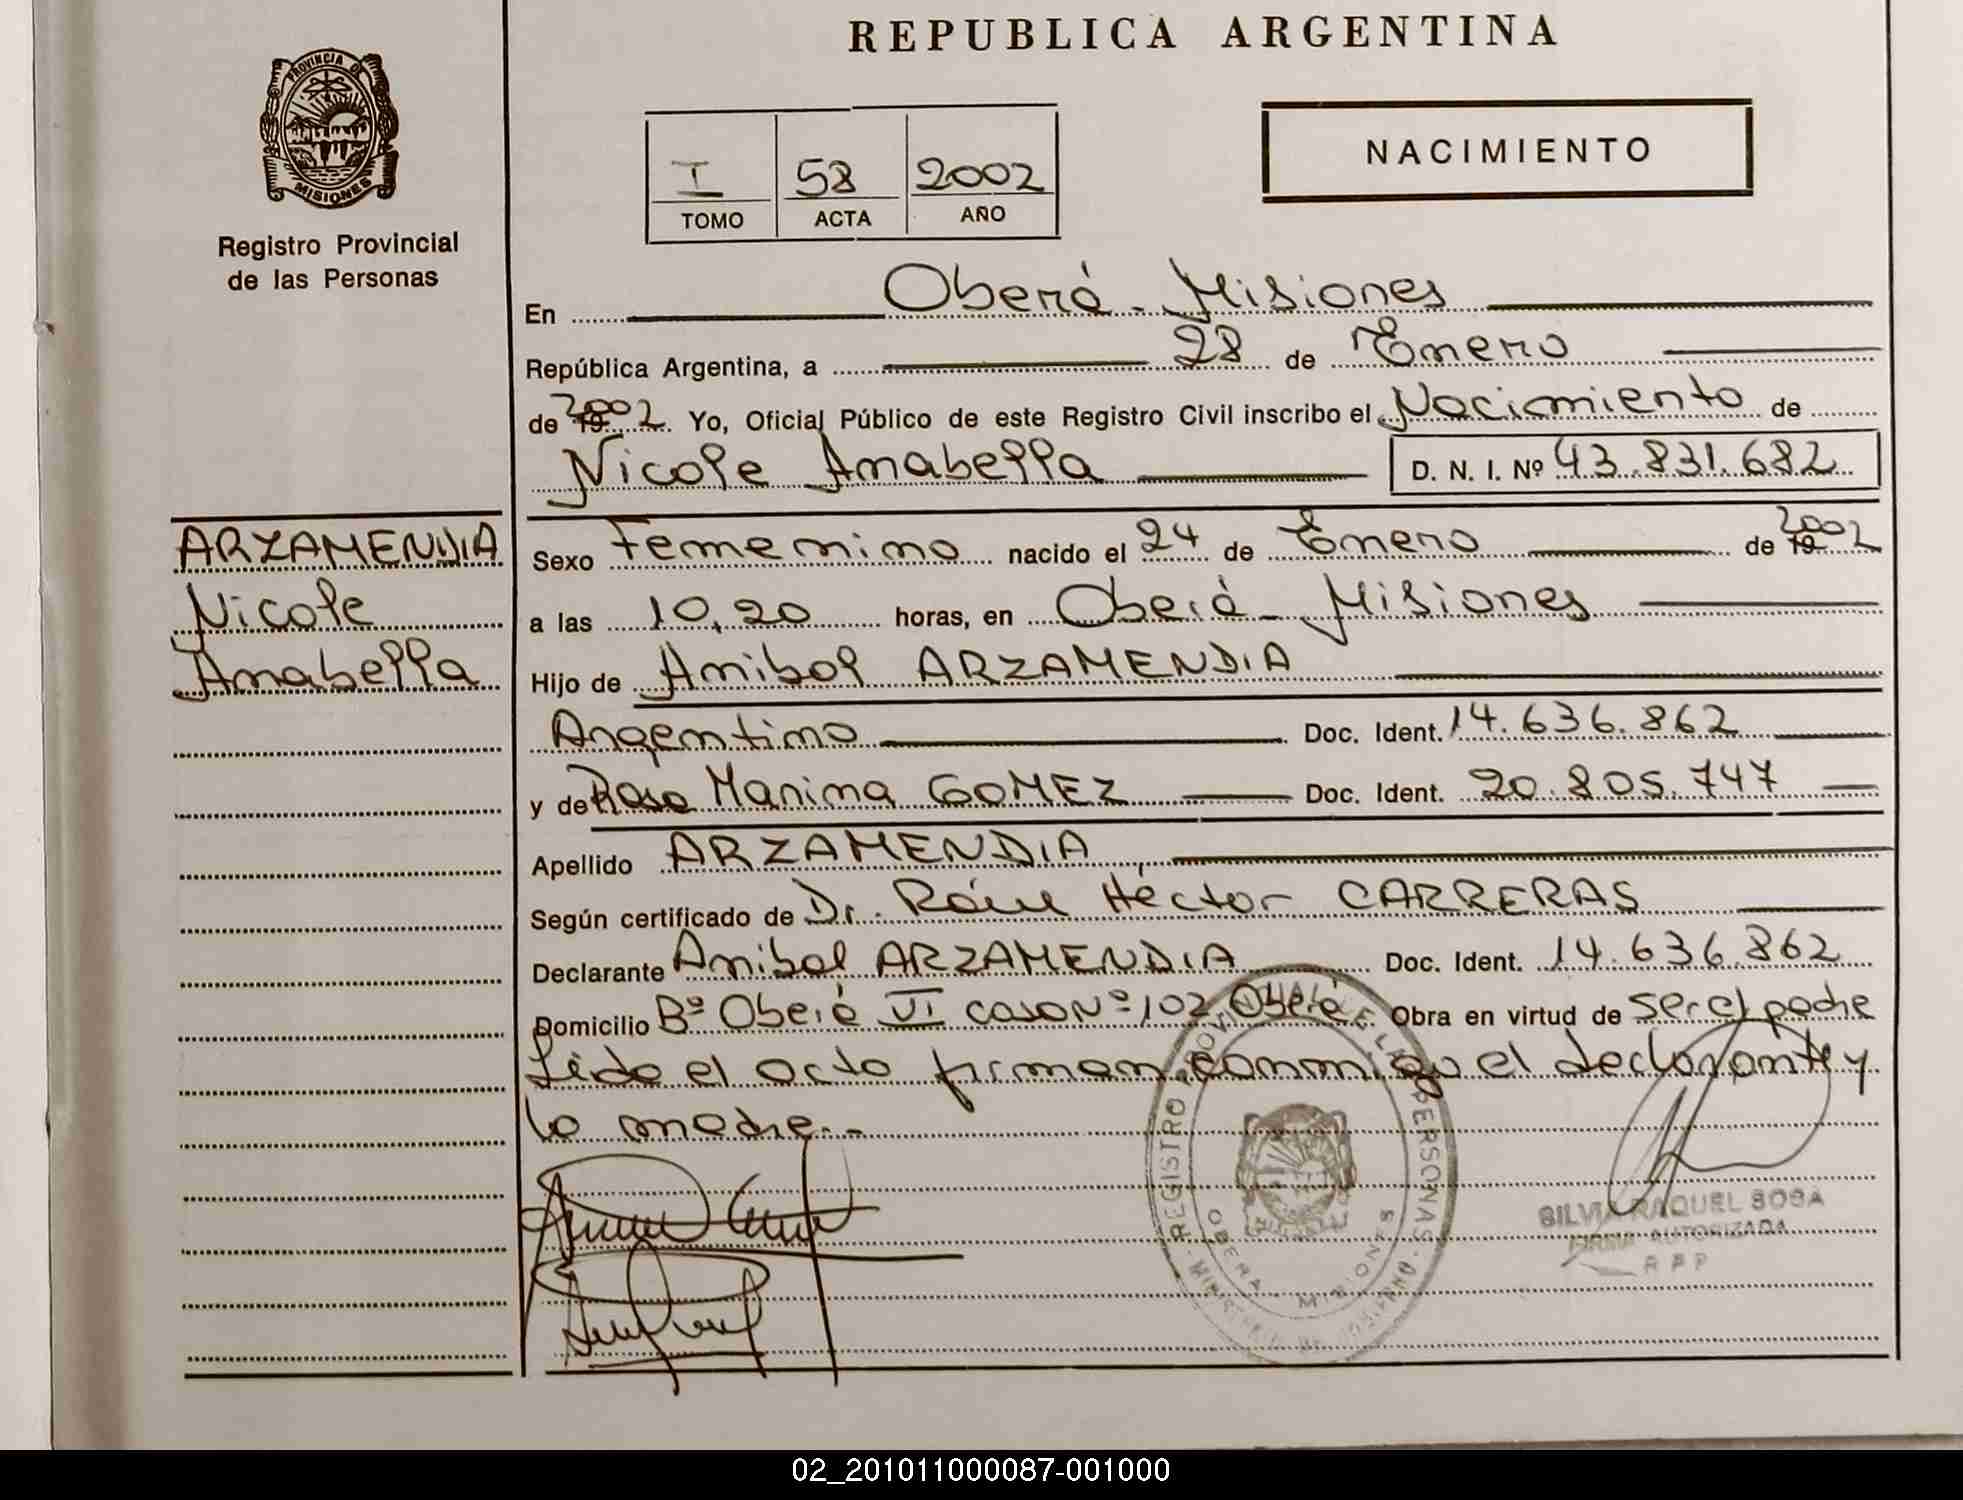 REPUBLICA ARGENTINA
PROVINCIA DE
MISIONES
Registro Provincial
de las Personas
I 58 2002
TOMO ACTA AÑO
NACIMIENTO
En Oberá - Misiones
República Argentina, a 28 de Enero
de 2002 Yo, Oficial Público de este Registro Civil inscribo el Nacimiento de
Nicole Anabella D. N. I. Nº 43.831.682
ARZAMENDIA
Nicole
Anabella
Sexo Femenino nacido el 24 de Enero de 2002
a las 10,20 horas, en Oberá - Misiones
Hijo de Anibal ARZAMENDIA
Argentino Doc. Ident. 14.636.862
y de Rosa Marina GOMEZ Doc. Ident. 20.805.747
Apellido ARZAMENDIA
Según certificado de Dr. Raúl Héctor CARRERAS
Declarante Anibal ARZAMENDIA Doc. Ident. 14.636.862
Domicilio Bº Oberá VI casa Nº 102 Oberá Obra en virtud de ser el padre
Leida el acta firman conmigo el declarante y
la madre.-
REGISTRO PROVINCIAL DE LAS PERSONAS
OBERA MISIONES
SILVIA RAQUEL SOSA
FIRMA AUTORIZADA
R P P
02_201011000087-001000